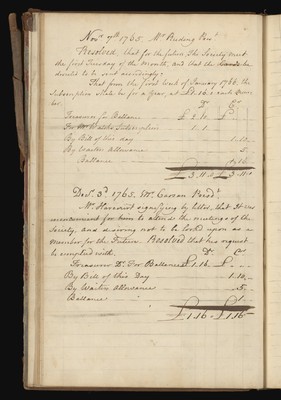 Novr. 7th 1765. Mr. Reding Prest.
Resolved, that for the future the Society meet
the first Tuesday of the Month, and that the Cards be
directed to be sent accordingly.
That from the first week of January 1766, the
Subscription shall be for a Year, at £1.16. each
Dr. Cr.
Treasurer for Ballance £ 2.10. £
1.1.
By Bill of this day 1.10.
By Waiters Allowance 5.
Ballance 1.16.
£ 3.11. £ 3.11.
Decr. 3d. 1765. Mr. Presdt.
Mr. Harcourt signifying by letter, that it was
inconvenient for him to attend the meetings of the
Society, and desiring not to be looked upon as a
Member for the Future. Resolved that his request
be complied with. Dr. Cr.
Treasurer Dr. for Ballance £1.16. £
By Bill of this Day 1.10.
By Waiters Allowance 5.
Ballance 1.
£1.16 £1.16